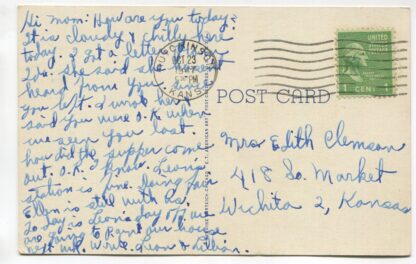 Hi Mom: How are you today?
It is cloudy & chilly here
today. I got a letter from
she said she
heard from you
you left. I wrote her &
said you were O.K. when
we seen you last.
how did the supper come
out. O.K. I know. Leon's
station is fine.
Ellen is still with us.
To day is Leon's day off. we
are going to Paint our house
next wk. Write. Leon & Lillian.
HUTCHINSON
OCT 23
PM
KANS.
UNITED
1 CENT 1
POST CARD
Mrs Edith Clemson
418 So. Market
Wichita 2, Kansas